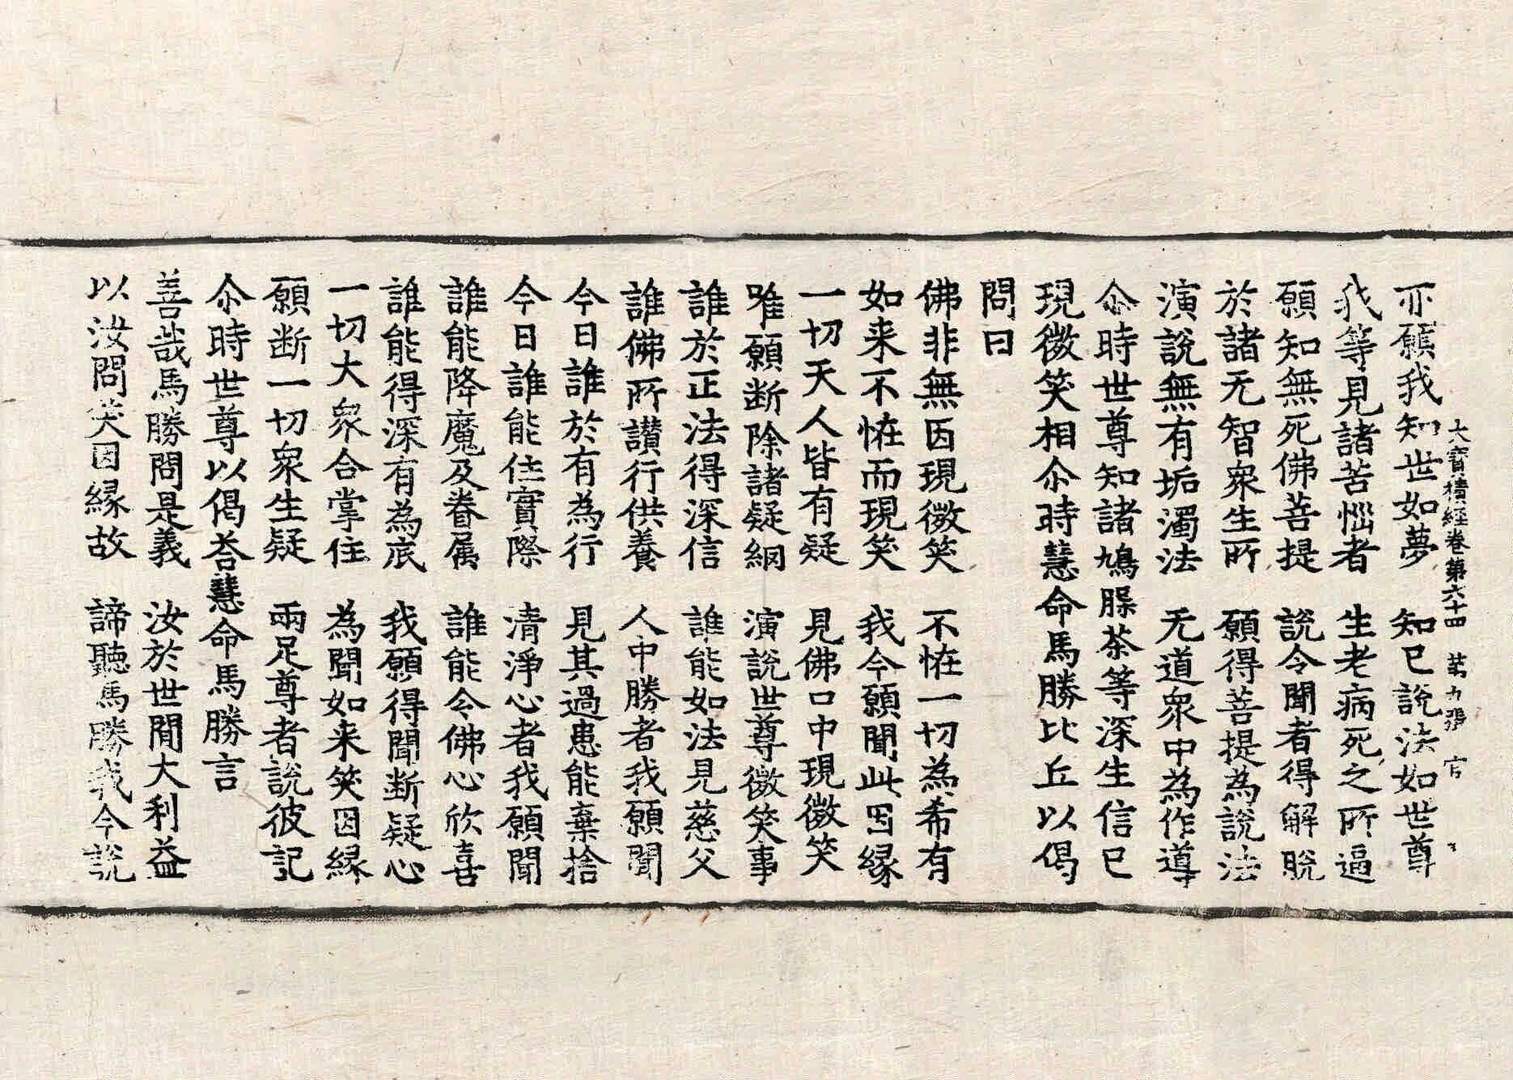 大寶積經卷第六十四　第九張　官
亦願我知世如夢　知已說法如世尊
我等見諸苦惱者　生老病死之所逼
願知無死佛菩提　說令聞者得解脫
於諸无智衆生所　願得菩提為說法
演說無有垢濁法　无道衆中為作導
尒時世尊知諸鳩臊茶等深生信已
現微笑相尒時慧命馬勝比丘以偈
問曰
佛非無因現微笑　不恠一切為希有
如来不恠而現笑　我今願聞此因縁
一切天人皆有疑　見佛口中現微笑
唯願断除諸疑網　演說世尊微笑事
誰於正法得深信　誰能如法見慈父
誰佛所讃行供養　人中勝者我願聞
今日誰於有為行　見其過患能棄捨
今日誰能住實際　清淨心者我願聞
誰能降魔及眷属　誰能令佛心欣喜
誰能得深有為底　我願得聞断疑心
一切大衆合掌住　為聞如来笑因縁
願断一切衆生疑　兩足尊者說彼記
尒時世尊以偈荅慧命馬勝言
善哉馬勝問是義　汝於世間大利益
以汝問笑因縁故　諦聽馬勝我今說